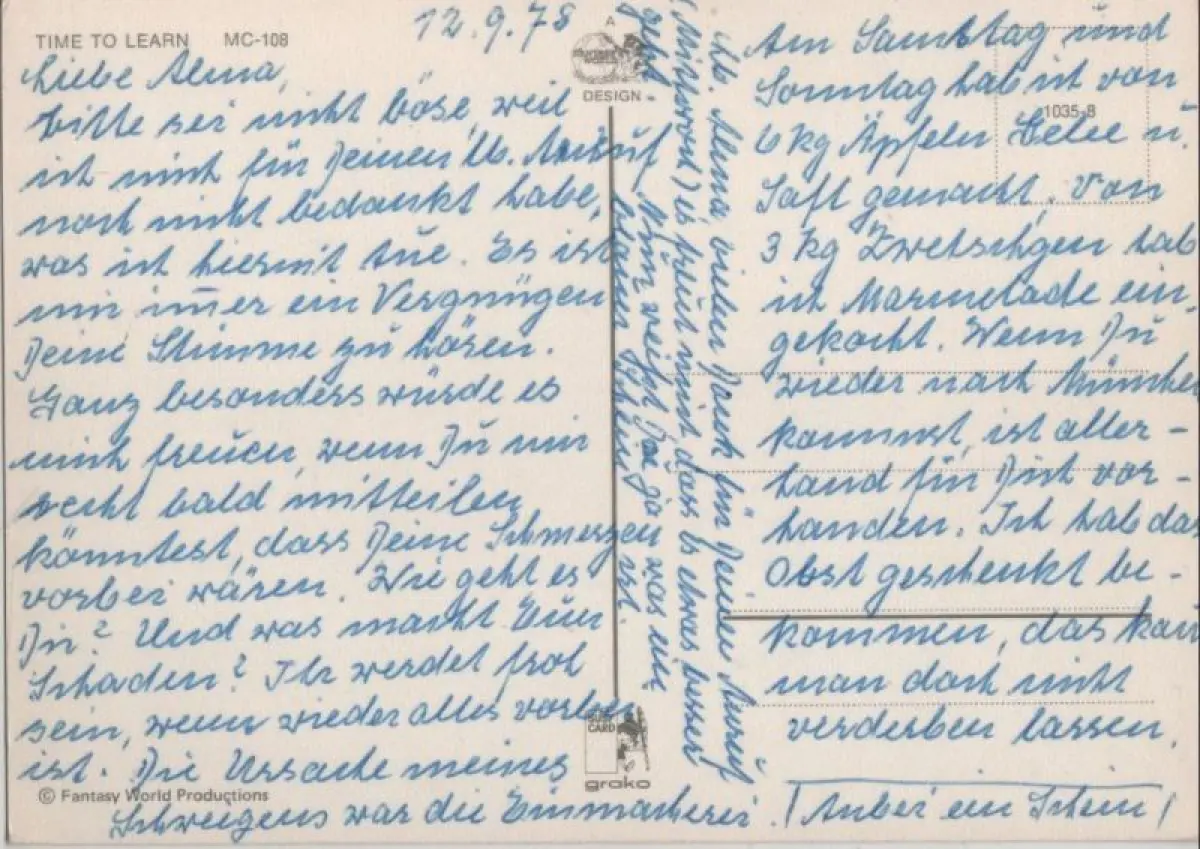 TIME TO LEARN MC-108
12.9.78
Liebe Alma,
bitte sei nicht böse, weil
ich mich für Deinen lb. Anruf
noch nicht bedankt habe,
was ich hiermit tue. Es ist
mir immer ein Vergnügen
Deine Stimme zu hören.
Ganz besonders würde es
mich freuen, wenn Du mir
recht bald mitteilen
könntest, dass Deine Schmerzen
vorbei wären. Wie geht es
Dir? Und was macht Euer
Schaden? Ihr werdet froh
sein, wenn wieder alles vorbei
ist. Die Ursache meines
© Fantasy World Productions
Schweigens war die Einmacherei.
A
DESIGN
CARD
grako
1035-8
Am Samstag und
Sonntag hab ich von
6 kg Äpfeln Gelee u.
Saft gemacht, von
3 kg Zwetschgen hab
ich Marmelade ein-
gekocht. Wenn Du
wieder nach München
kommst, ist aller-
hand für Dich vor-
handen. Ich hab das
Obst geschenkt be-
kommen, das kann
man doch nicht
verderben lassen.
(Anbei ein Schein)
Lb. Alma vielen Dank für Deinen Anruf
(Mittwoch) es freut mich, dass es etwas besser
geht. Nun weisst Du ja was ein
blauer Schein ist.